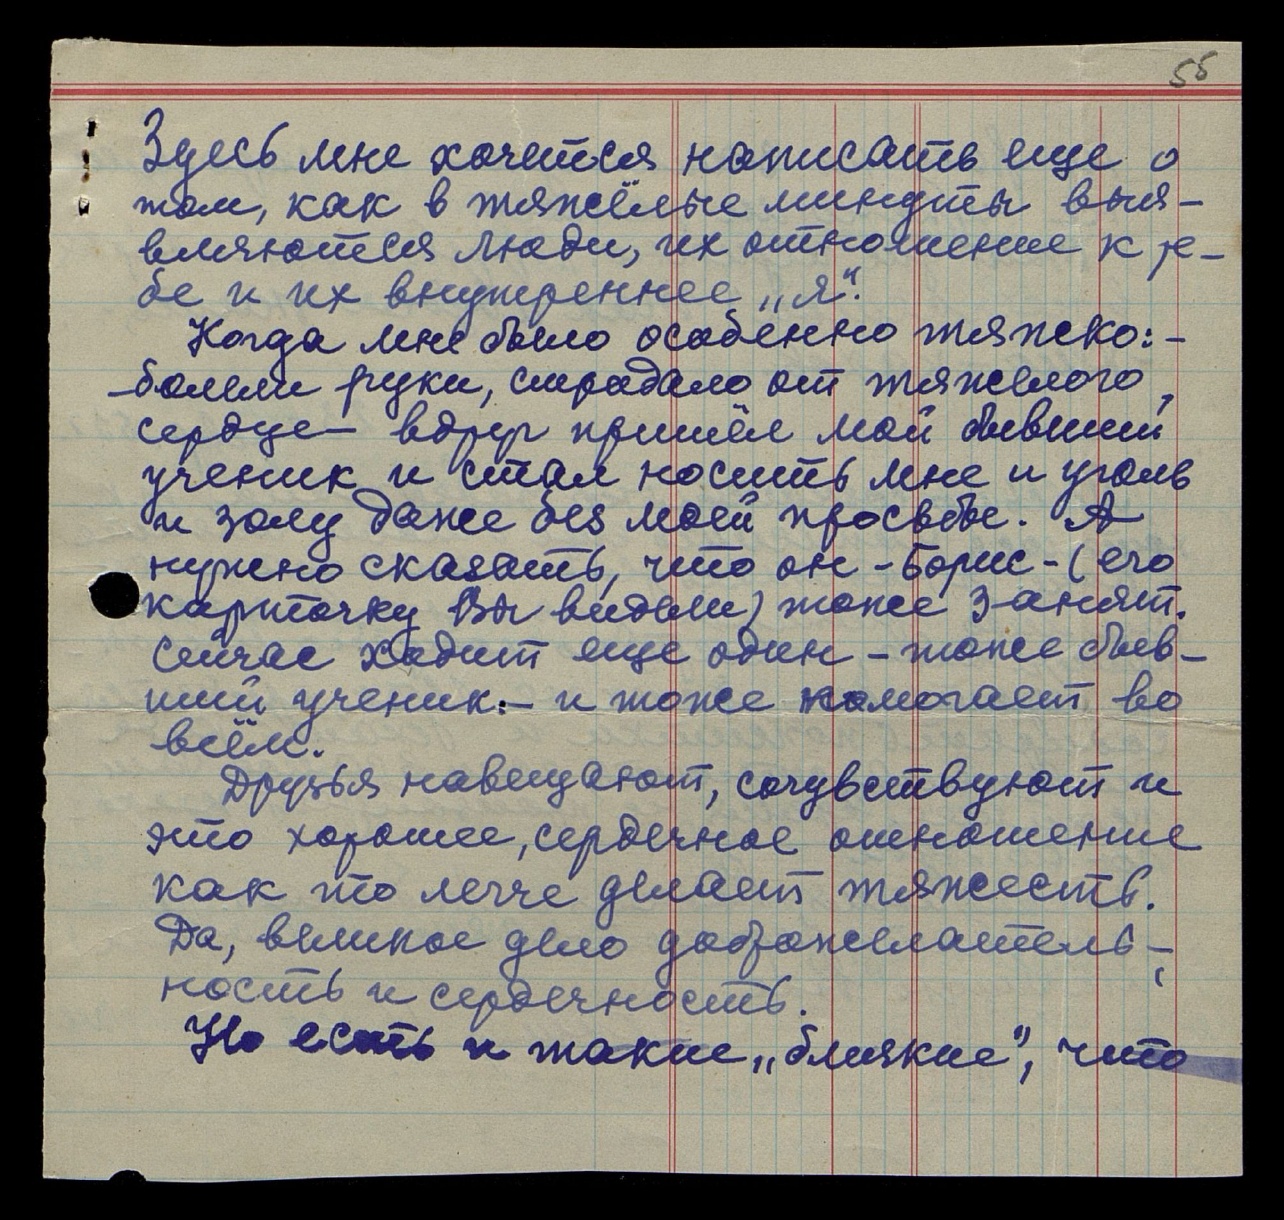 55
Здесь мне хочется написать еще о
том, как в тяжёлые минуты выя-
вляются люди, их отношение к те-
бе и их внутреннее „я“.
Когда мне было особенно тяжко: -
-болели руки, страдало от тяжелого,
сердце - вдруг пришёл мой бывший
ученик и стал носить мне и уголь
и золу даже без моей просьбы. А
нужно сказать, что он - Борис - (его
карточку Вы видели) тоже занят.
Сейчас ходит еще один - тоже быв-
ший ученик: - и тоже помогает во
всём.
Друзья навещают, сочувствуют и
это хорошее, сердечное отношение
как то легче делает тяжесть.
Да, великое дело доброжелатель-
ность и сердечность.
Но есть и такие „близкие“, что